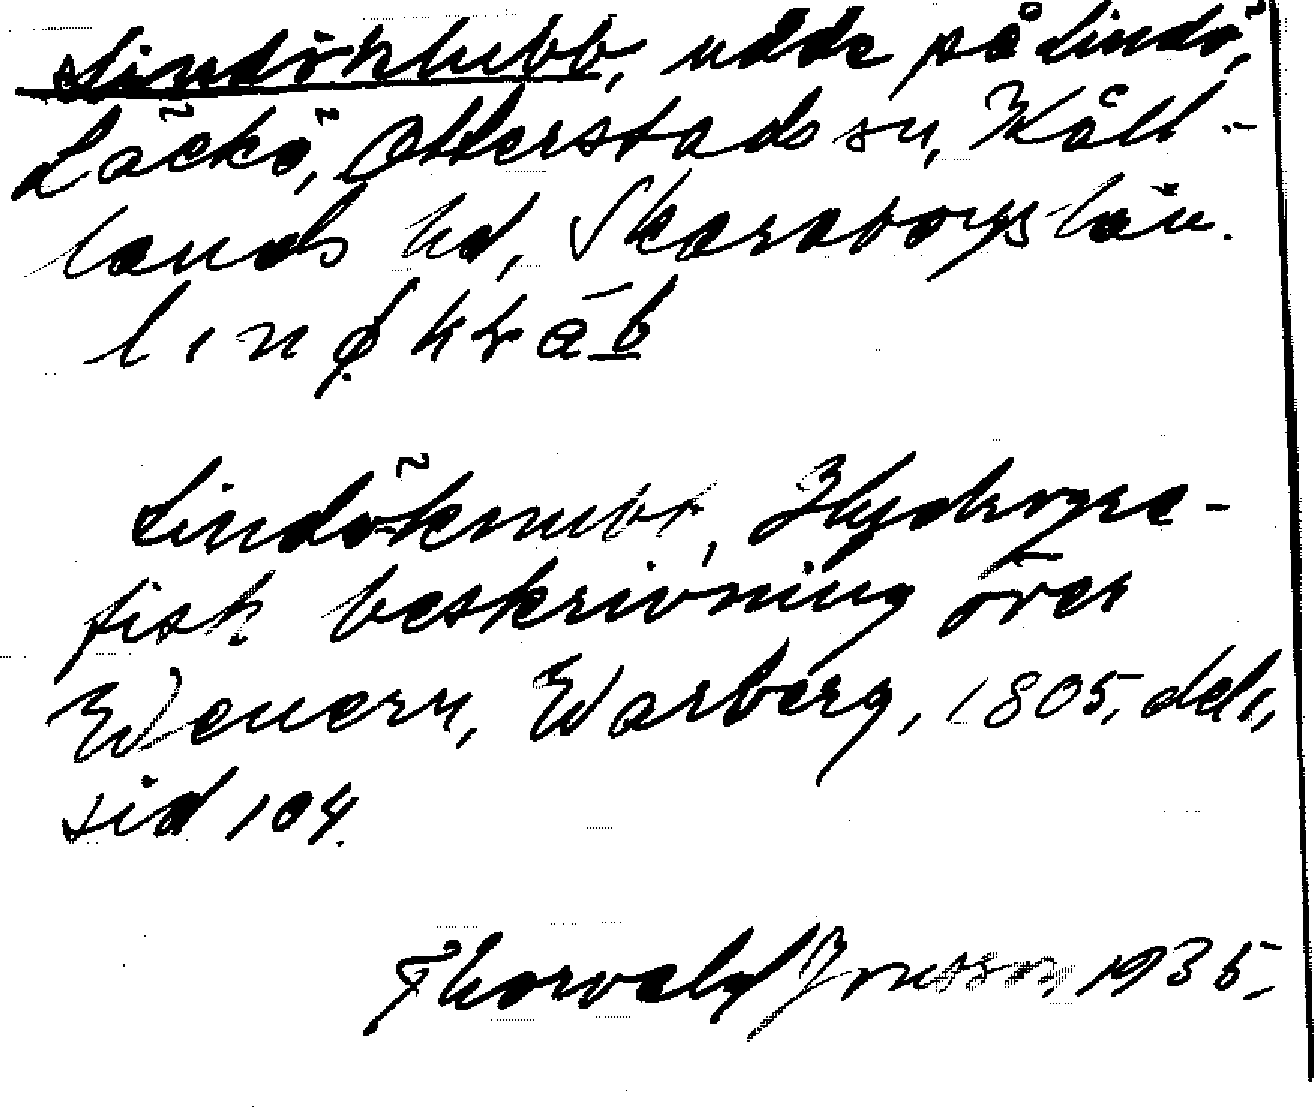 Lindöklubb, udde på Lindö,
Läckö, Otterstads sn, Kåll-
lands hd, Skaraborgs län.

Lindöknubb, Hydrogra-
fisk beskrivning över
Wenern, Warberg, 1805, del 1,
sid 104.
Thorvald Jonsson 1935.